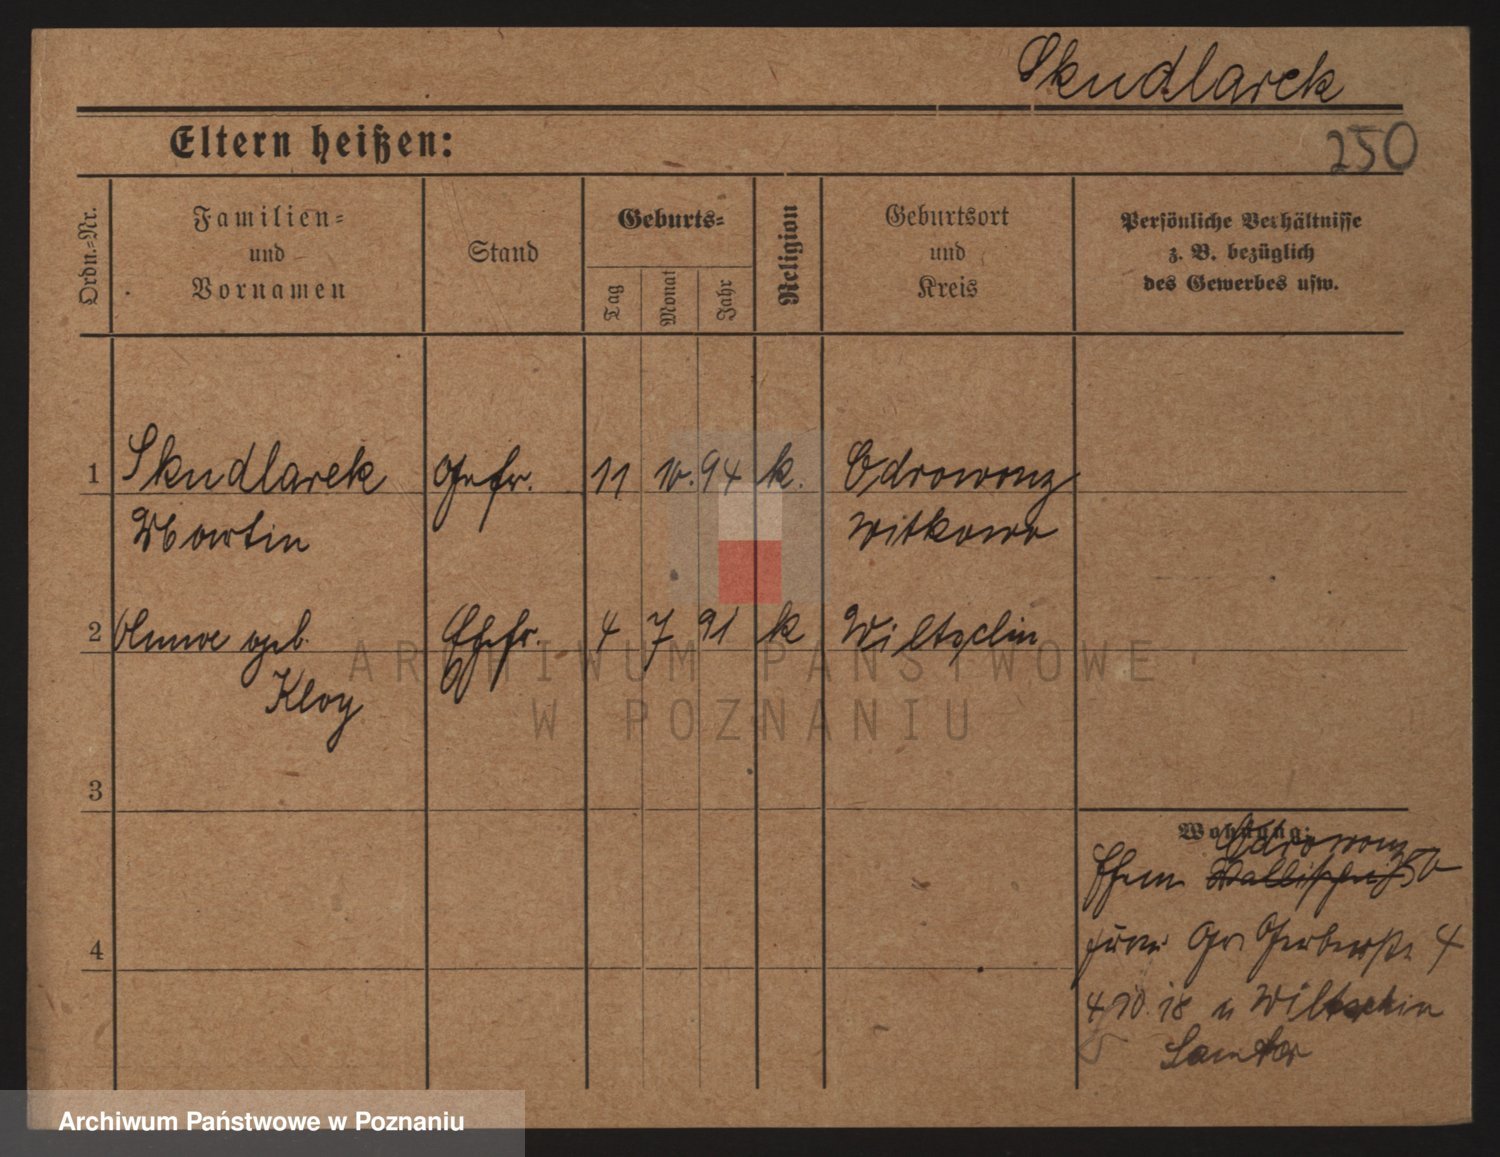 Skudlarek
Eltern heißen:
250
Ordn.-Nr.
Familien-
und
Vornamen
Stand
Geburts-
Tag
Monat
Jahr
Religion
Geburtsort
und
Kreis
Persönliche Verhältnisse
z. B. bezüglich
des Gewerbes usw.
1 Skudlarek Gefr. 11 10. 94 k. Odrowonz
Martin Witkowo
2 geb. Ehefr. 4 7 91 k Wiltschin
Kloy
3
4
Wohnung:
Odrowonz
Ehem Wallischei
Gr. Gerberstr. 4
4/10. 18 n Wiltschin
Samter
ARCHIWUM PAŃSTWOWE
W POZNANIU
Archiwum Państwowe w Poznaniu